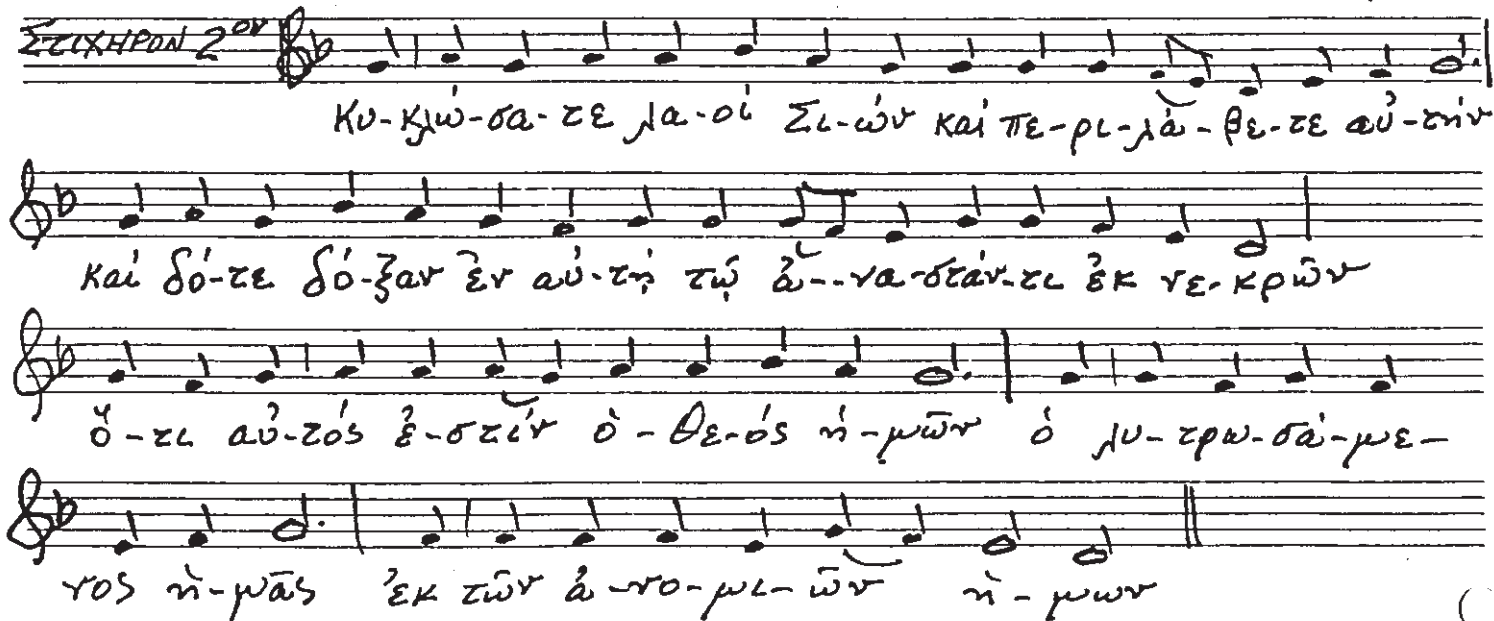 ΣΤΙΧΗΡΟΝ 2ον
Κυ-κλώ-σα-τε λα-οί Σι-ών καί πε-ρι-λά-βε-τε αὐ-τήν
καί δό-τε δό-ξαν ἐν αὐ-τῇ τῷ ἀ--να-στάν-τι ἐκ νε-κρῶν
ὅ-τι αὐ-τός ἐ-στίν ὁ-Θε-ός ἡ-μῶν ὁ λυ-τρω-σά-με-
νος ἡ-μᾶς ἐκ τῶν ἀ-νο-μι-ῶν ἡ-μων